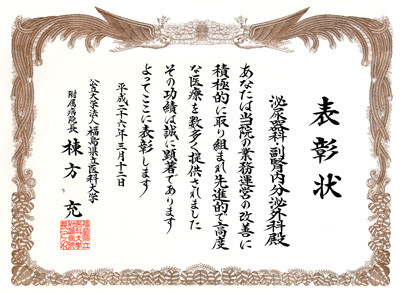 表彰状
泌尿器科・副腎内分泌外科殿
あなたは当院の業務運営の改善に
積極的に取り組まれ先進的で高度
な医療を数多く提供されました
その功績は誠に顕著であります
よってここに表彰します
平成二十六年三月十二日
公立大学法人福島県立医科大学
附属病院長 棟方 充